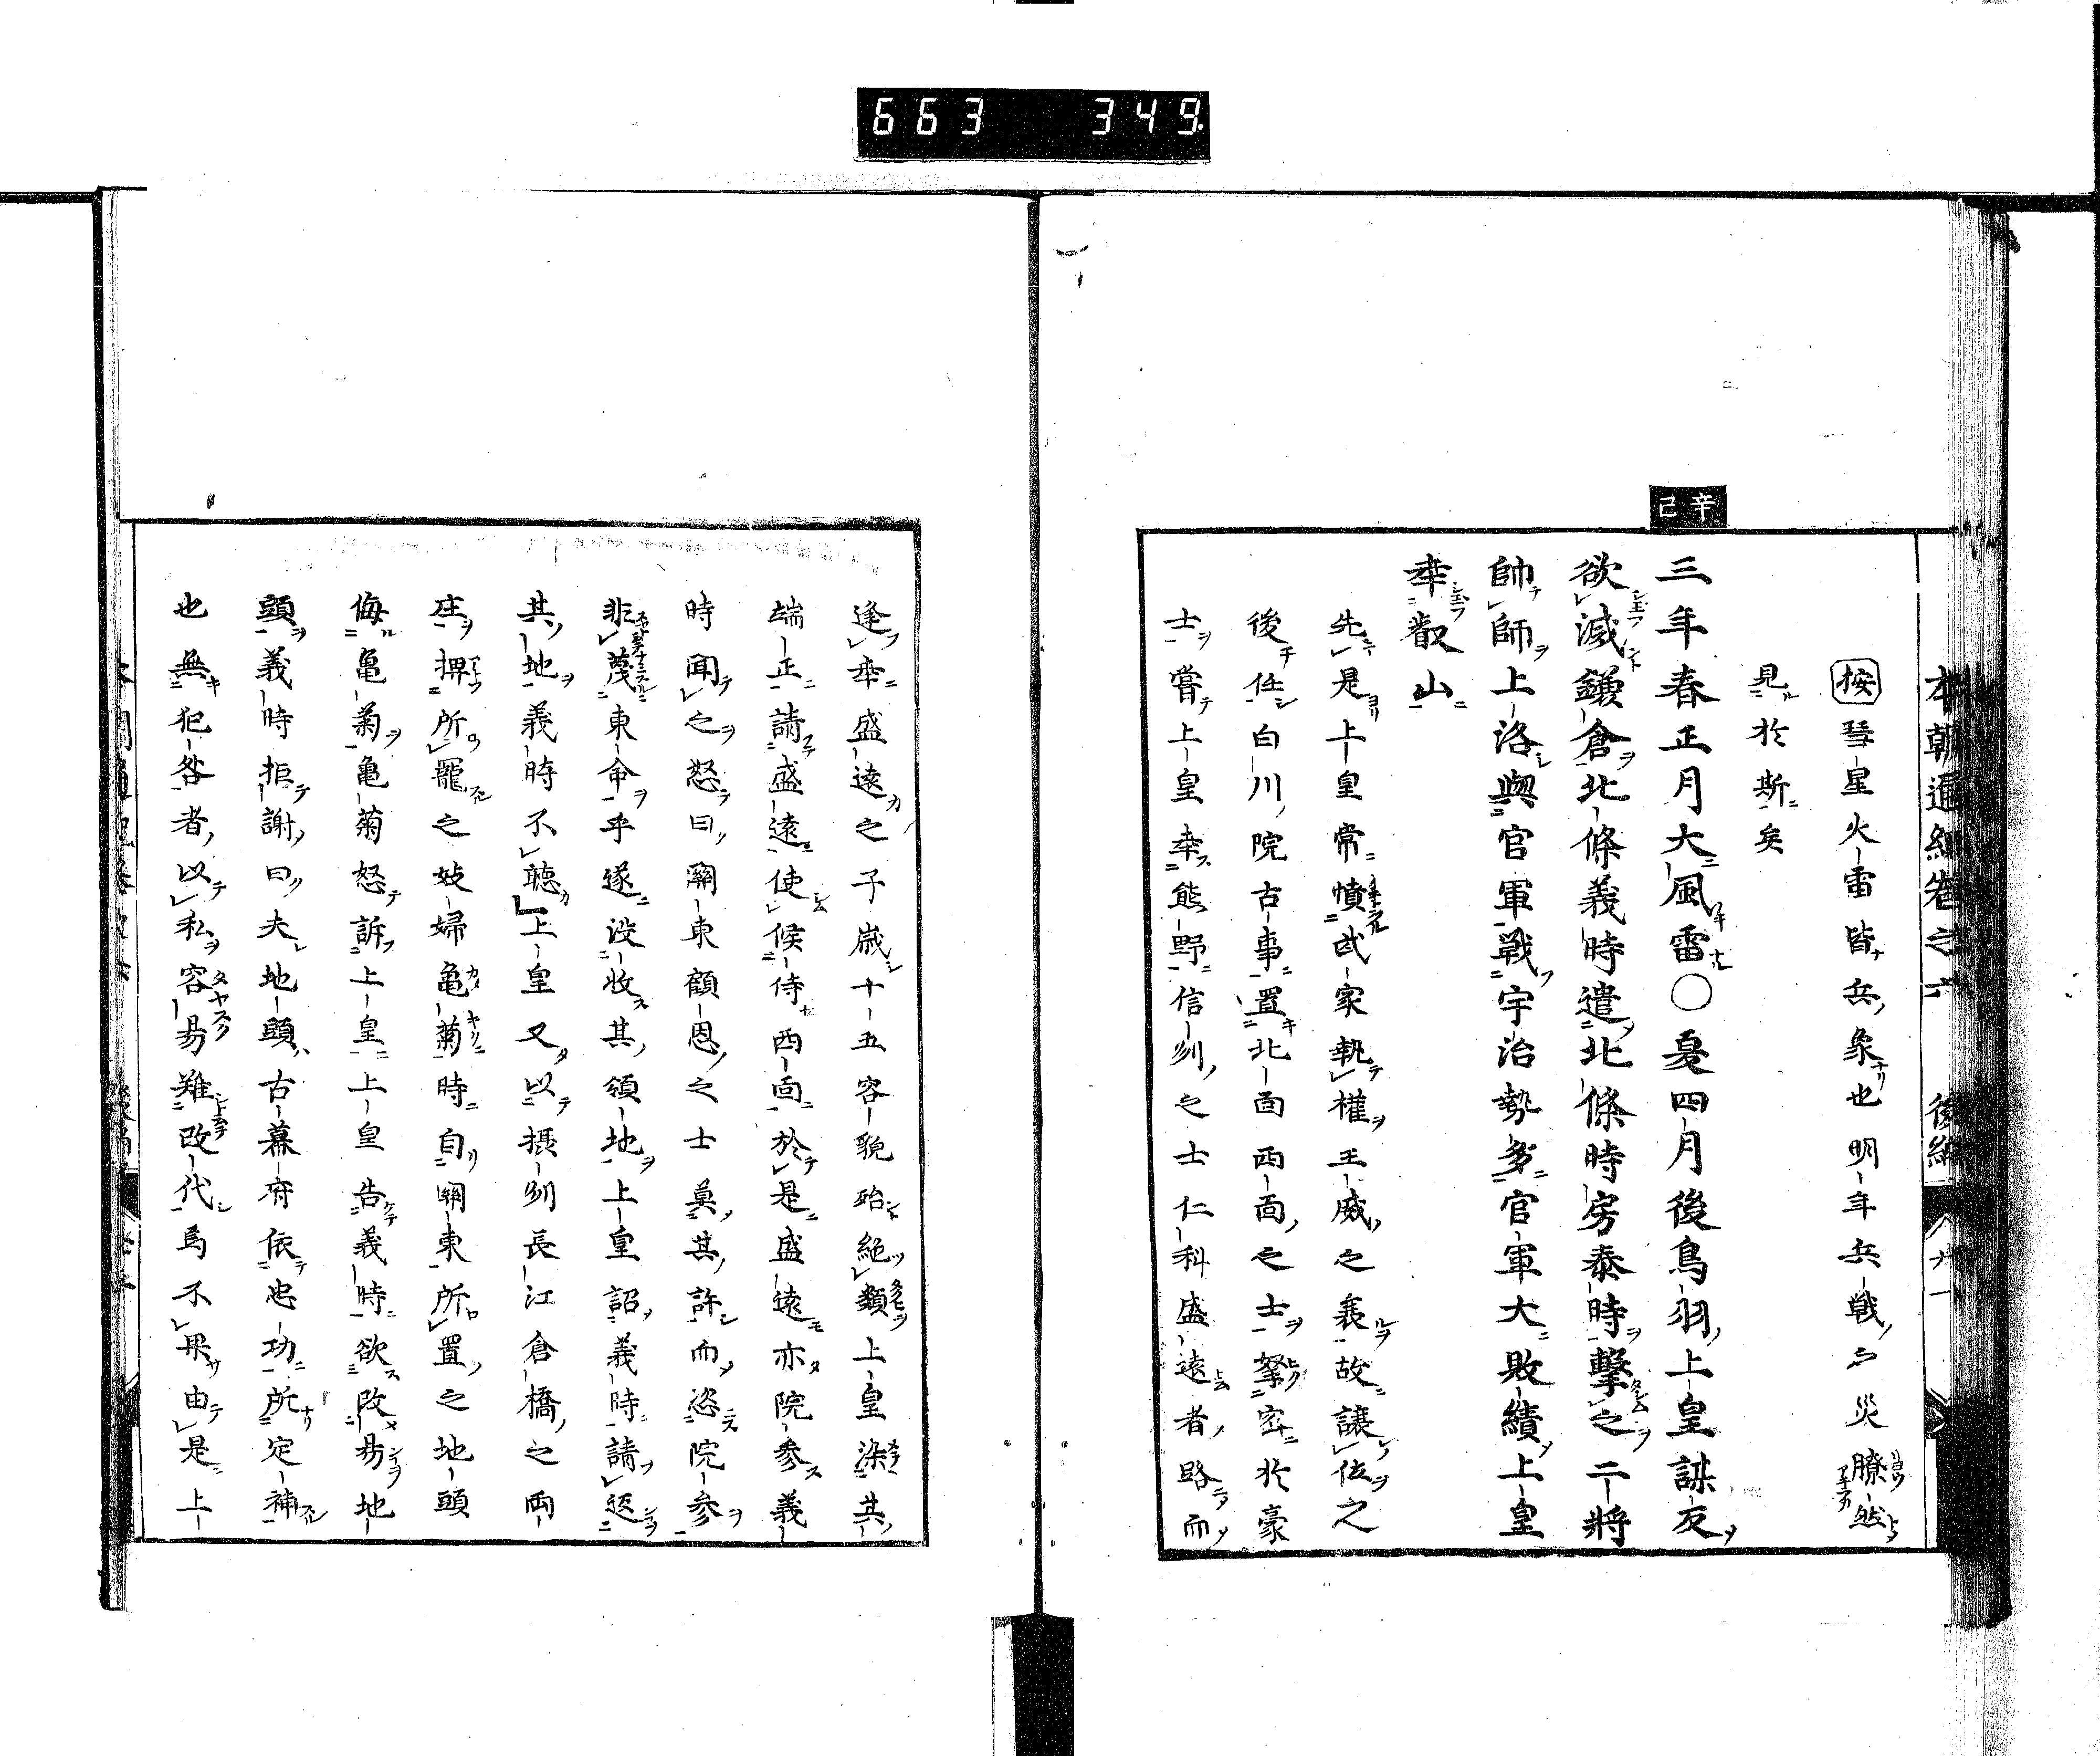 663 349
本朝通紀卷之六 後編
按彗星火雷皆兵象也明年兵戦之災瞭然
見於斯矣
辛巳
三年春正月大風雷〇夏四月後鳥羽上皇謀反
欲滅鎌倉北條義時遣北條時房泰時擊之二將
帥師上洛與官軍戦宇治勢多官軍大敗績上皇
幸叡山
先是上皇常憤武家執權王威之衰故讓位之
後任白川院古事置北面西面之士孥密於豪
士嘗上皇幸熊野信州之士仁科盛遠者路而
逢幸盛遠之子歳十五容貌殆絶類上皇染其
端正請盛遠使候侍西面於是盛遠亦院參義
時聞之怒曰關東顧恩之士莫其許而恣院參
非蔑東命乎遂没收其領地上皇詔義時請返
其地義時不聴上皇又以摂州長江倉橋之両
庄押所寵之妓婦亀菊時自關東所置之地頭
侮亀菊亀菊怒訴上皇上皇告義時欲改易地
頭義時拒謝曰夫地頭古幕府依忠功所定補
也無犯咎者以私容易難改代焉不果由是上